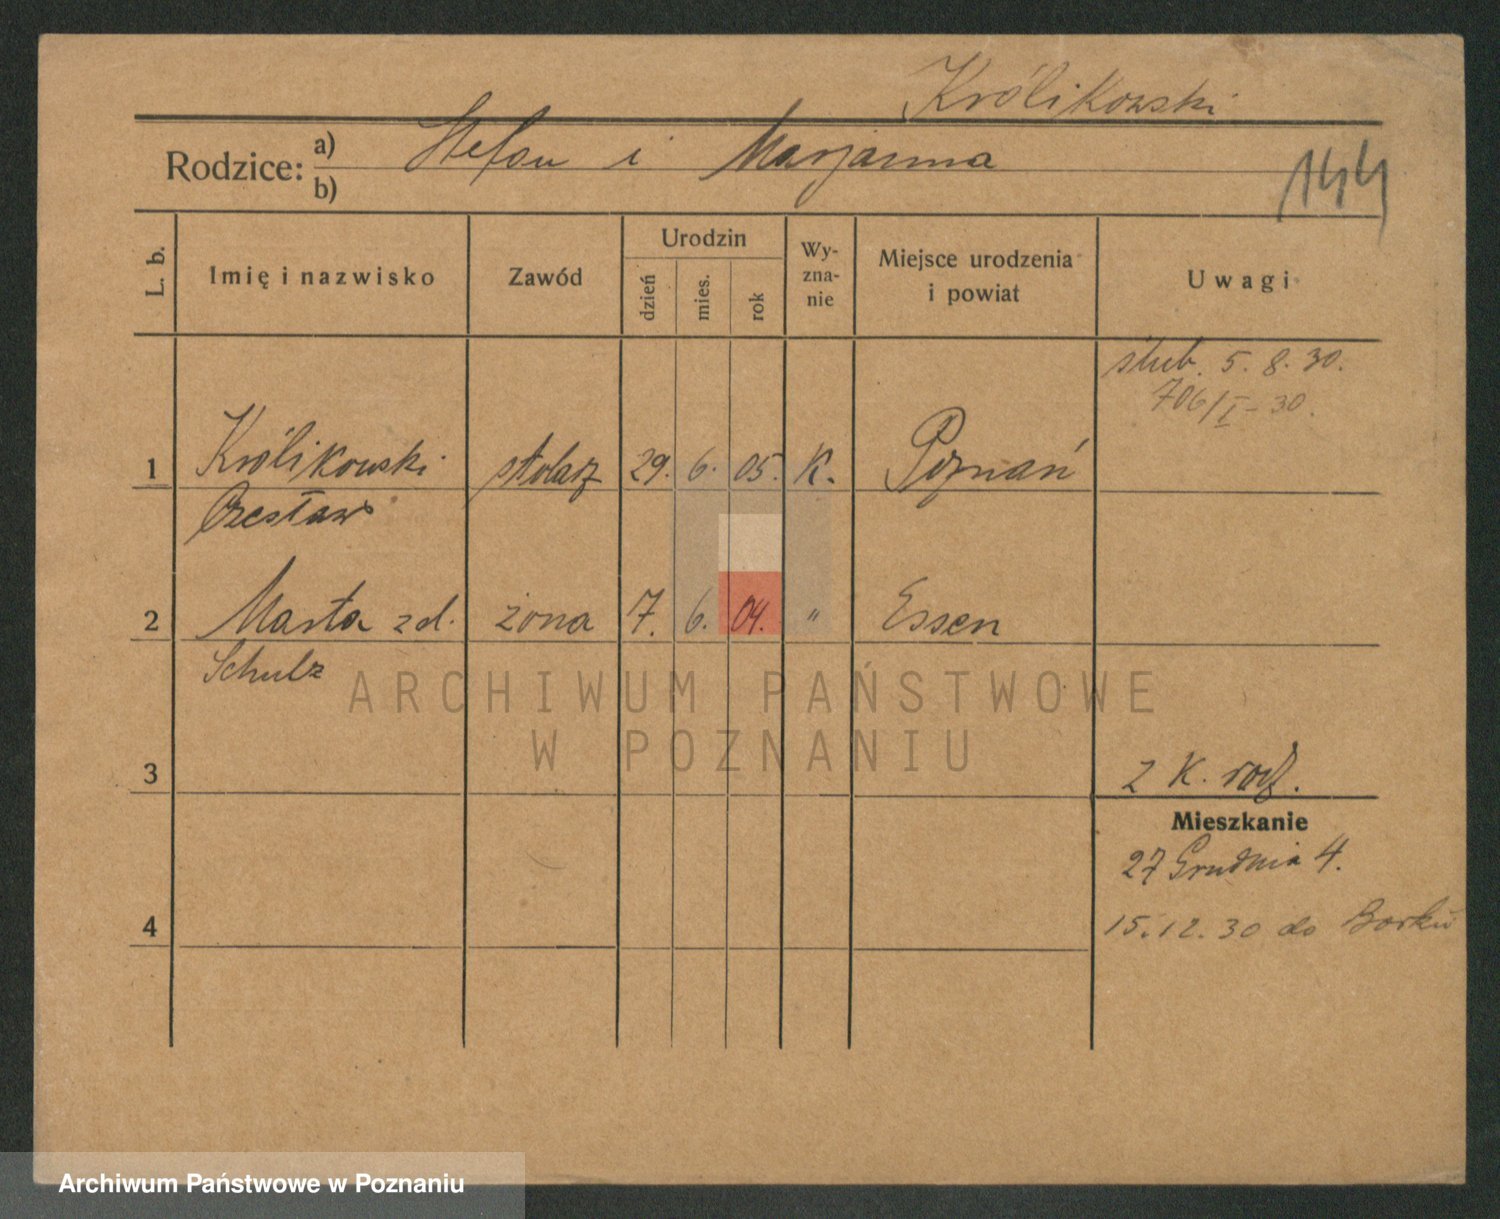 Królikowski
Rodzice: a) Stefan i Marjanna
b)
144
L. b.
Imię i nazwisko
Zawód
Urodzin
dzień
mies.
rok
Wy-
zna-
nie
Miejsce urodzenia
i powiat
Uwagi
ślub. 5. 8. 30.
706/I-30.
1 Królikowski stolarz 29. 6. 05. K. Poznań
Czesław
2 Marta zd. żona 7. 6. 04. " Essen
Schulz
ARCHIWUM PAŃSTWOWE
W POZNANIU
3
z K. rodz.
Mieszkanie
27 Grudnia 4.
4
15.12.30 do Borku
Archiwum Państwowe w Poznaniu